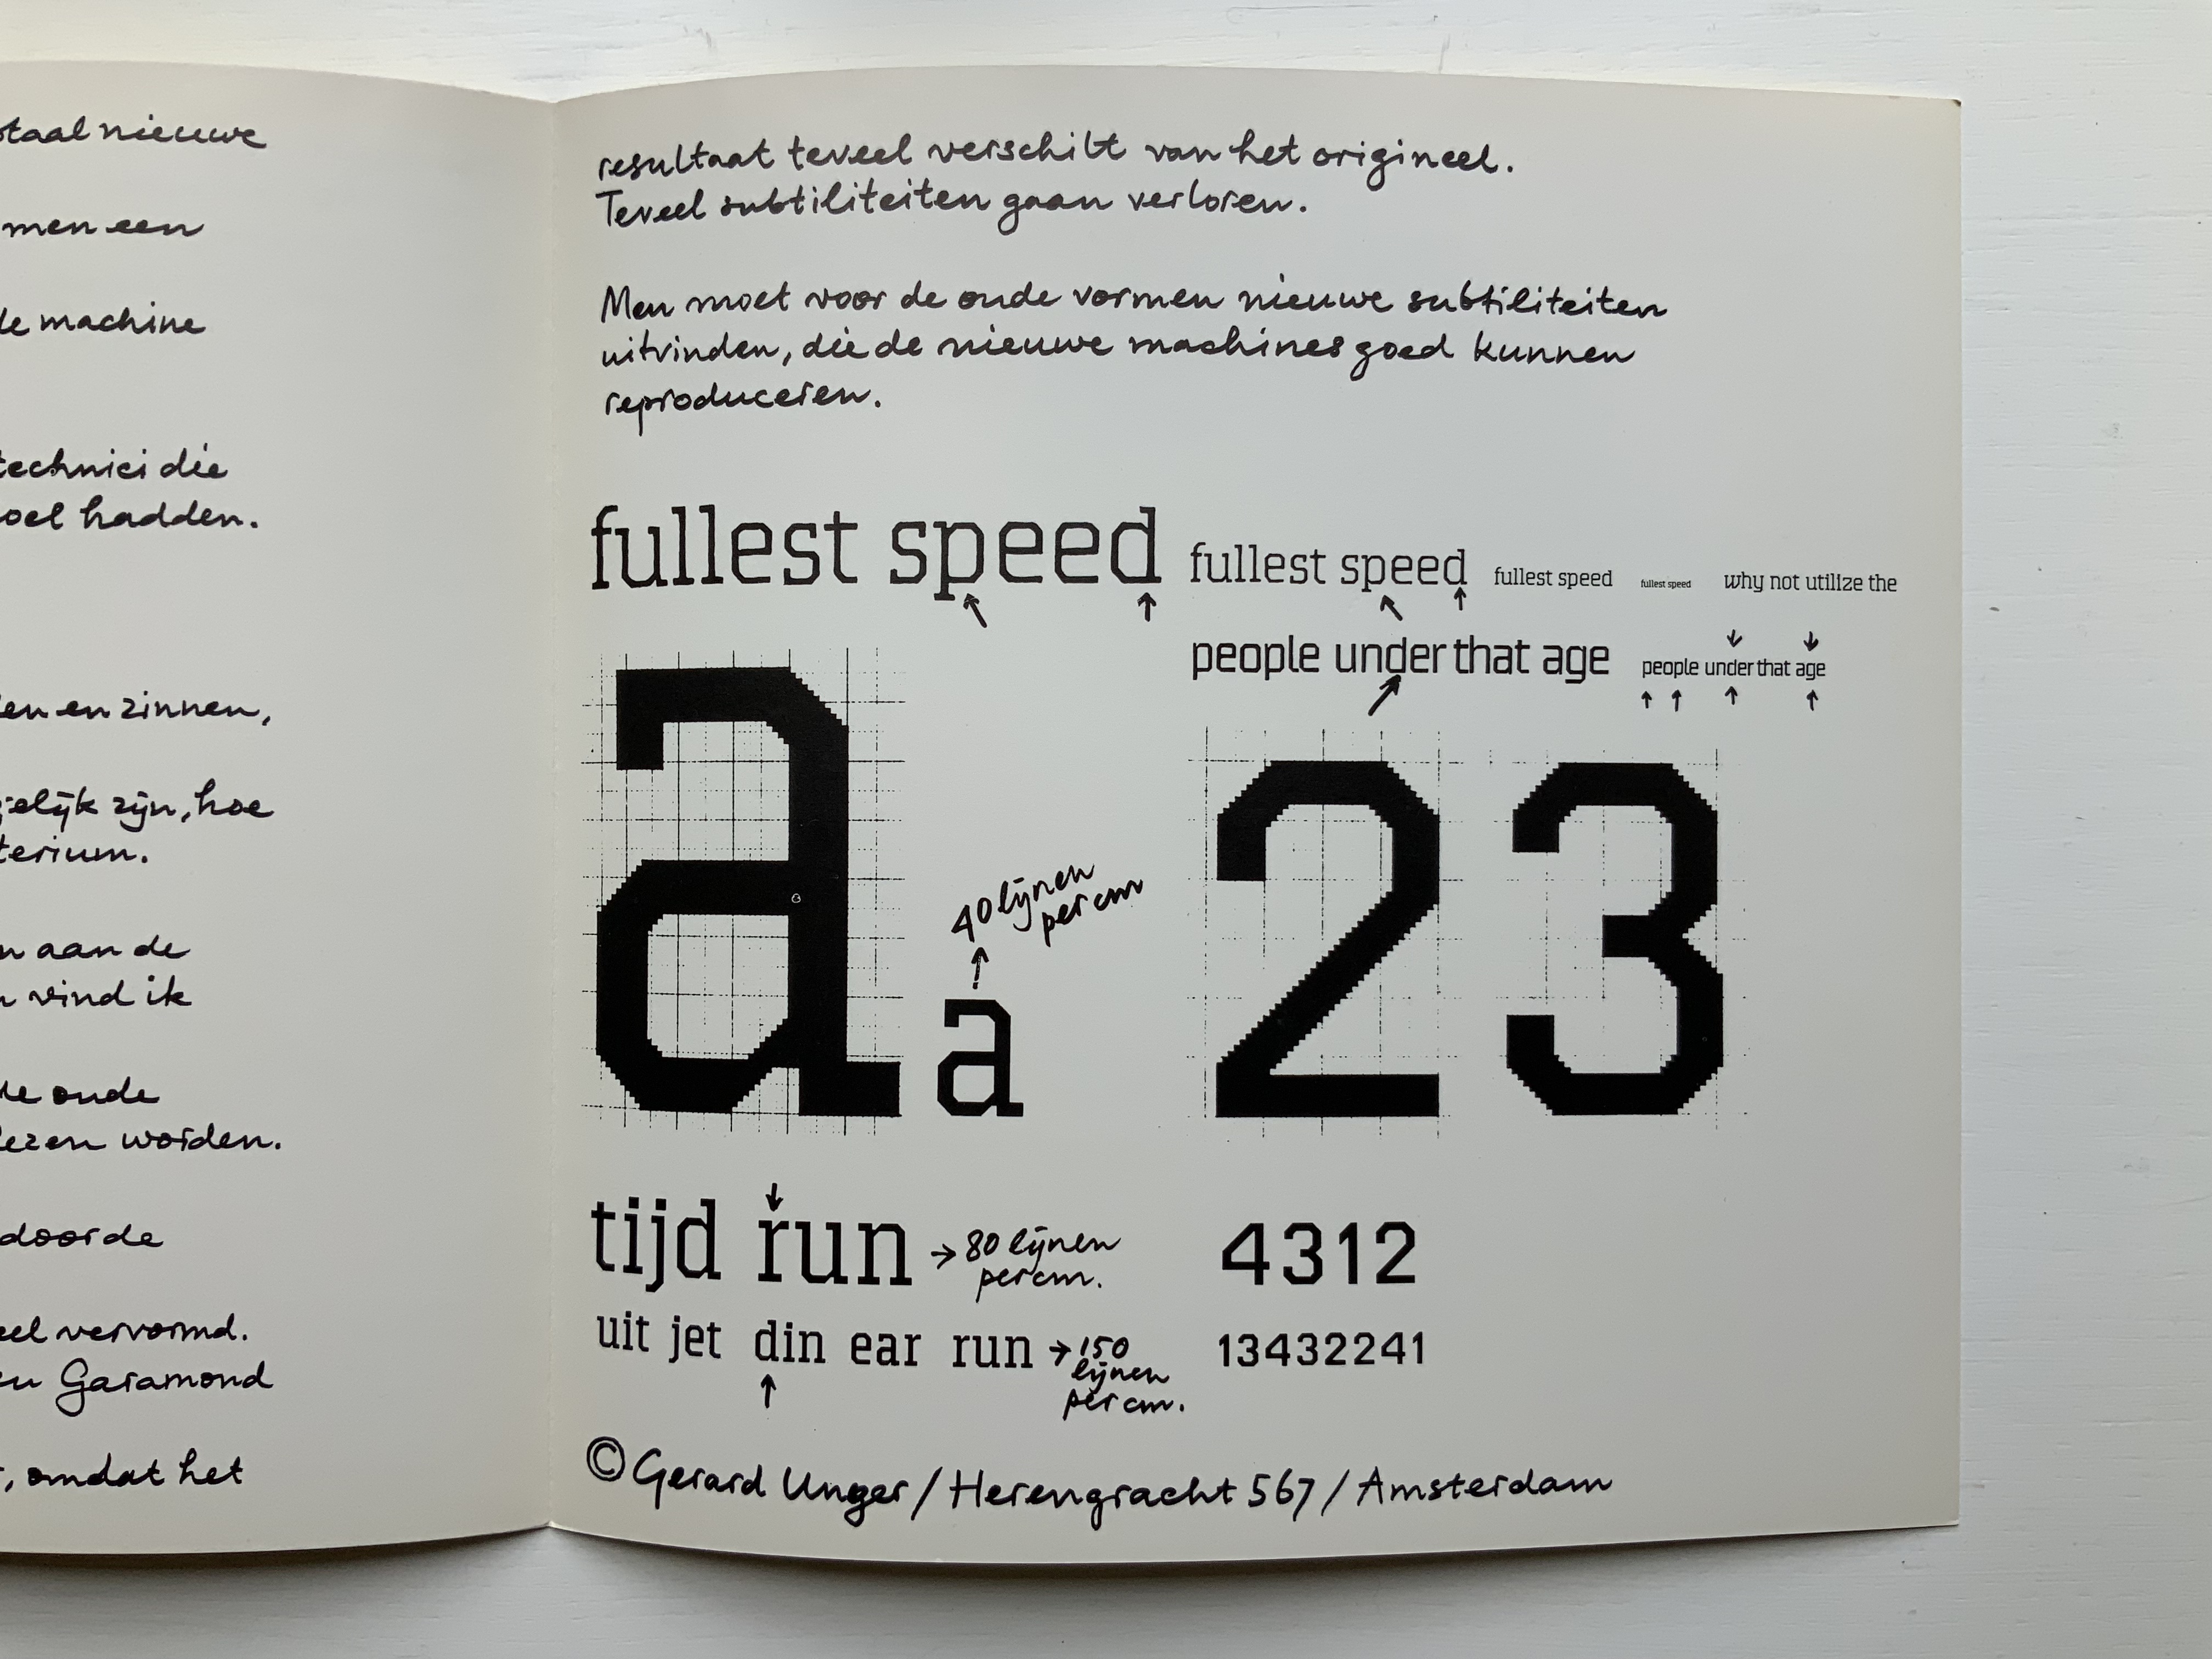 nieuwe
men een
machine
technici die
hadden.
en zinnen,
zijn, hoe
aan de
vind ik
oude
worden.
door de
vervormd.
Garamond
, omdat het
resultaat teveel verschilt van het origineel.
Teveel subtiliteiten gaan verloren.
Men moet voor de oude vormen nieuwe subtiliteiten
uitvinden, die de nieuwe machines goed kunnen
reproduceren.
fullest speed fullest speed fullest speed fullest speed why not utilize the
people under that age people under that age
a
40 lijnen
per cm
a
2 3
tijd run → 80 lijnen
per cm.
4312
uit jet din ear run → 150
lijnen
per cm.
13432241
© Gerard Unger / Herengracht 567 / Amsterdam